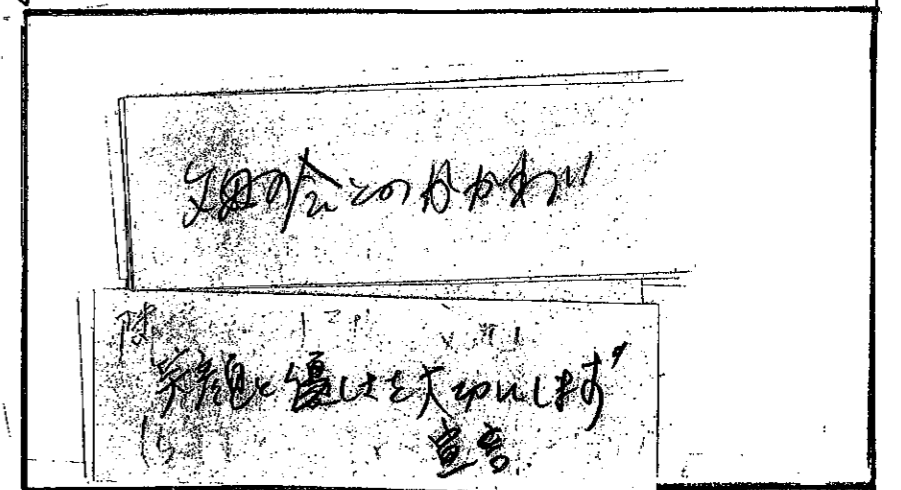 父母の会とのかかわり
笑顔と優しさを大切にします〃
宣言